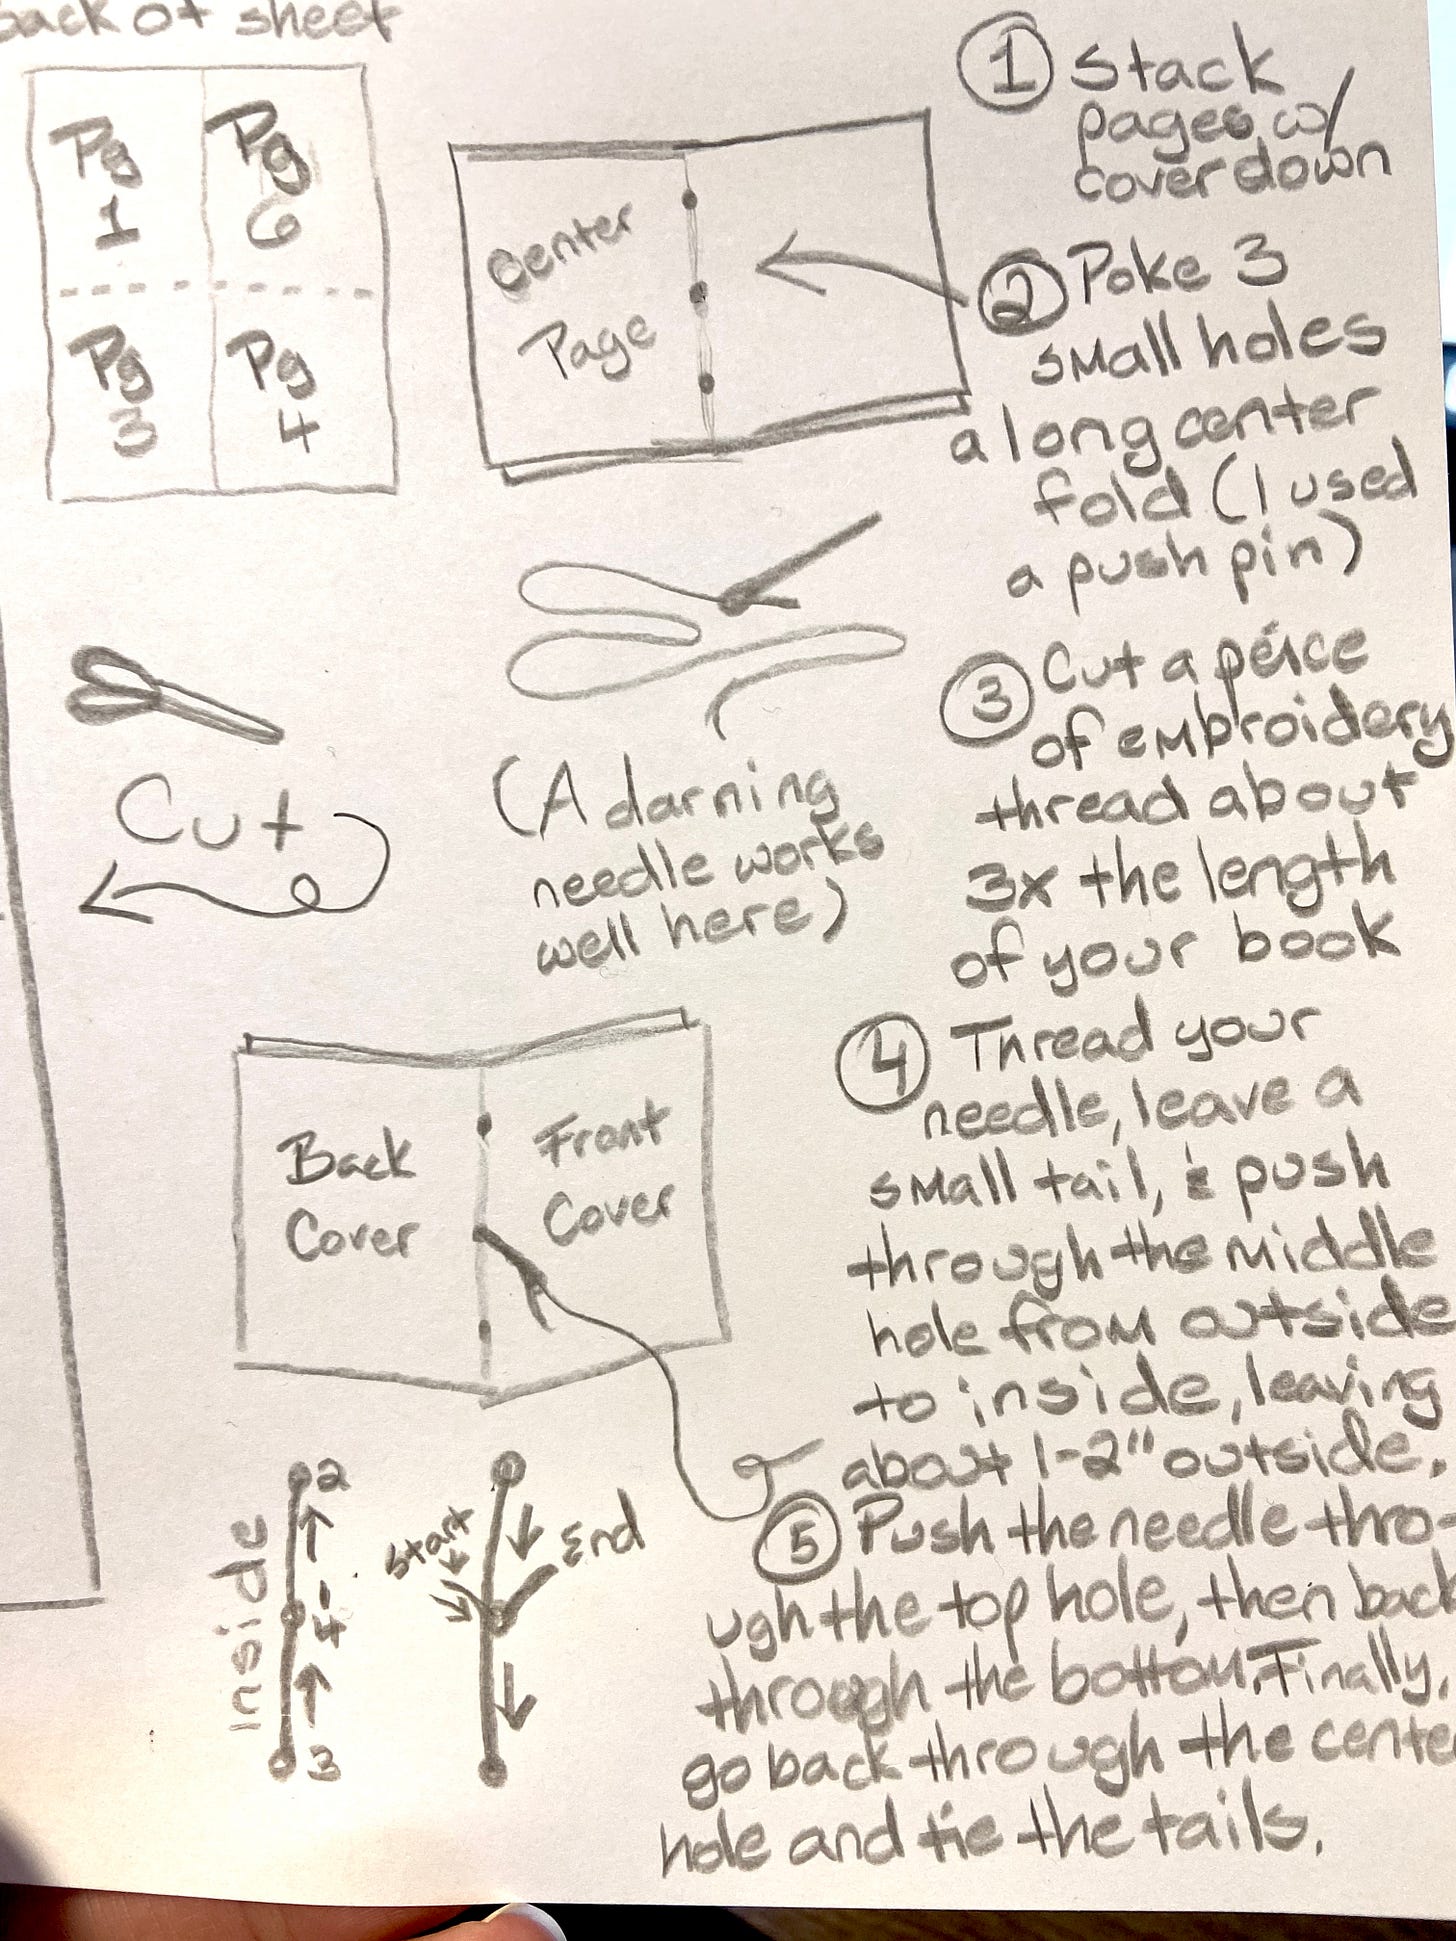 back of sheet
Pg
1
Pg
6
Pg
3
Pg
4
Center
Page
① Stack
pages w/
cover down
② Poke 3
small holes
along center
fold (I used
a push pin)
Cut
(A darning
needle works
well here)
③ Cut a peice
of embroidery
thread about
3x the length
of your book
Back
Cover
Front
Cover
④ Thread your
needle, leave a
small tail, & push
through the middle
hole from outside
to inside, leaving
about 1-2" outside.
Inside
2
4
3
Start
End
⑤ Push the needle thro-
ugh the top hole, then back
through the bottom. Finally,
go back through the cente
hole and tie the tails.